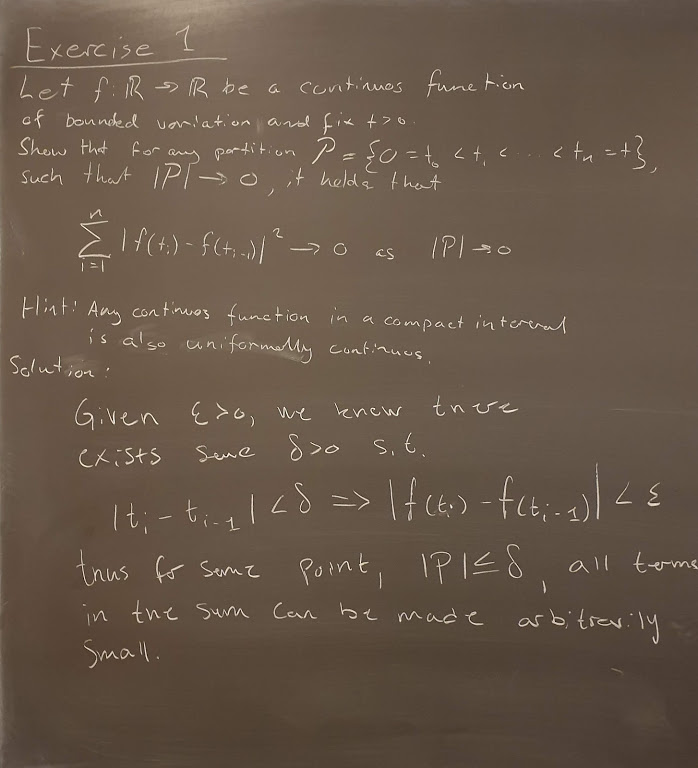 Exercise 1
Let f: ℝ → ℝ be a continuos function
of bounded variation and fix t>0.
Show that for any partition P = {0 = t₀ < t₁ < ... < tₙ = t},
such that |P| → 0, it holds that
n
∑ |f(tᵢ) - f(tᵢ₋₁)|² → 0 as |P| → 0
i=1
Hint: Any continuos function in a compact interval
is also uniformally continuos.
Solution:
Given ε>0, we know there
exists some δ>0 s.t.
|tᵢ - tᵢ₋₁| < δ => |f(tᵢ) - f(tᵢ₋₁)| < ε
thus for some point, |P| ≤ δ, all terms
in the sum can be made arbitrarily
small.